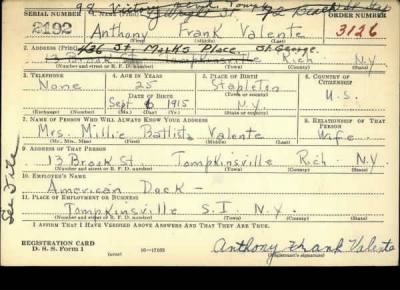 98 Victory Blvd Tomp
SERIAL NUMBER
ORDER NUMBER
2192
Anthony Frank Valente
3126
(First) (Middle) (Last)
2. ADDRESS (Print)
136 St. Marks Place St. George.
13 Broak St. Tompkinsville Rich N.Y.
(Number and street or R. F. D. number) (Town) (County) (State)
3. TELEPHONE
4. AGE IN YEARS
5. PLACE OF BIRTH
6. COUNTRY OF CITIZENSHIP
None
25
Stapleton
DATE OF BIRTH
(Town or county)
Sept 6 1915
N.Y.
U.S.
(Exchange) (Number)
(Mo.) (Day) (Yr.)
(State or country)
7. NAME OF PERSON WHO WILL ALWAYS KNOW YOUR ADDRESS
8. RELATIONSHIP OF THAT PERSON
Mrs. Millie Battista Valente
Wife
(Mr., Mrs., Miss) (First) (Middle) (Last)
9. ADDRESS OF THAT PERSON
13 Broak St. Tompkinsville Rich. N.Y.
(Number and street or R. F. D. number) (Town) (County) (State)
10. EMPLOYER'S NAME
American Dock -
11. PLACE OF EMPLOYMENT OR BUSINESS
Tompkinsville S.I. N.Y.
(Number and street or R. F. D. number) (Town) (County) (State)
I AFFIRM THAT I HAVE VERIFIED ABOVE ANSWERS AND THAT THEY ARE TRUE.
REGISTRATION CARD
D. S. S. Form 1
(over)
16-17105
Anthony Frank Valente
(Registrant's signature)